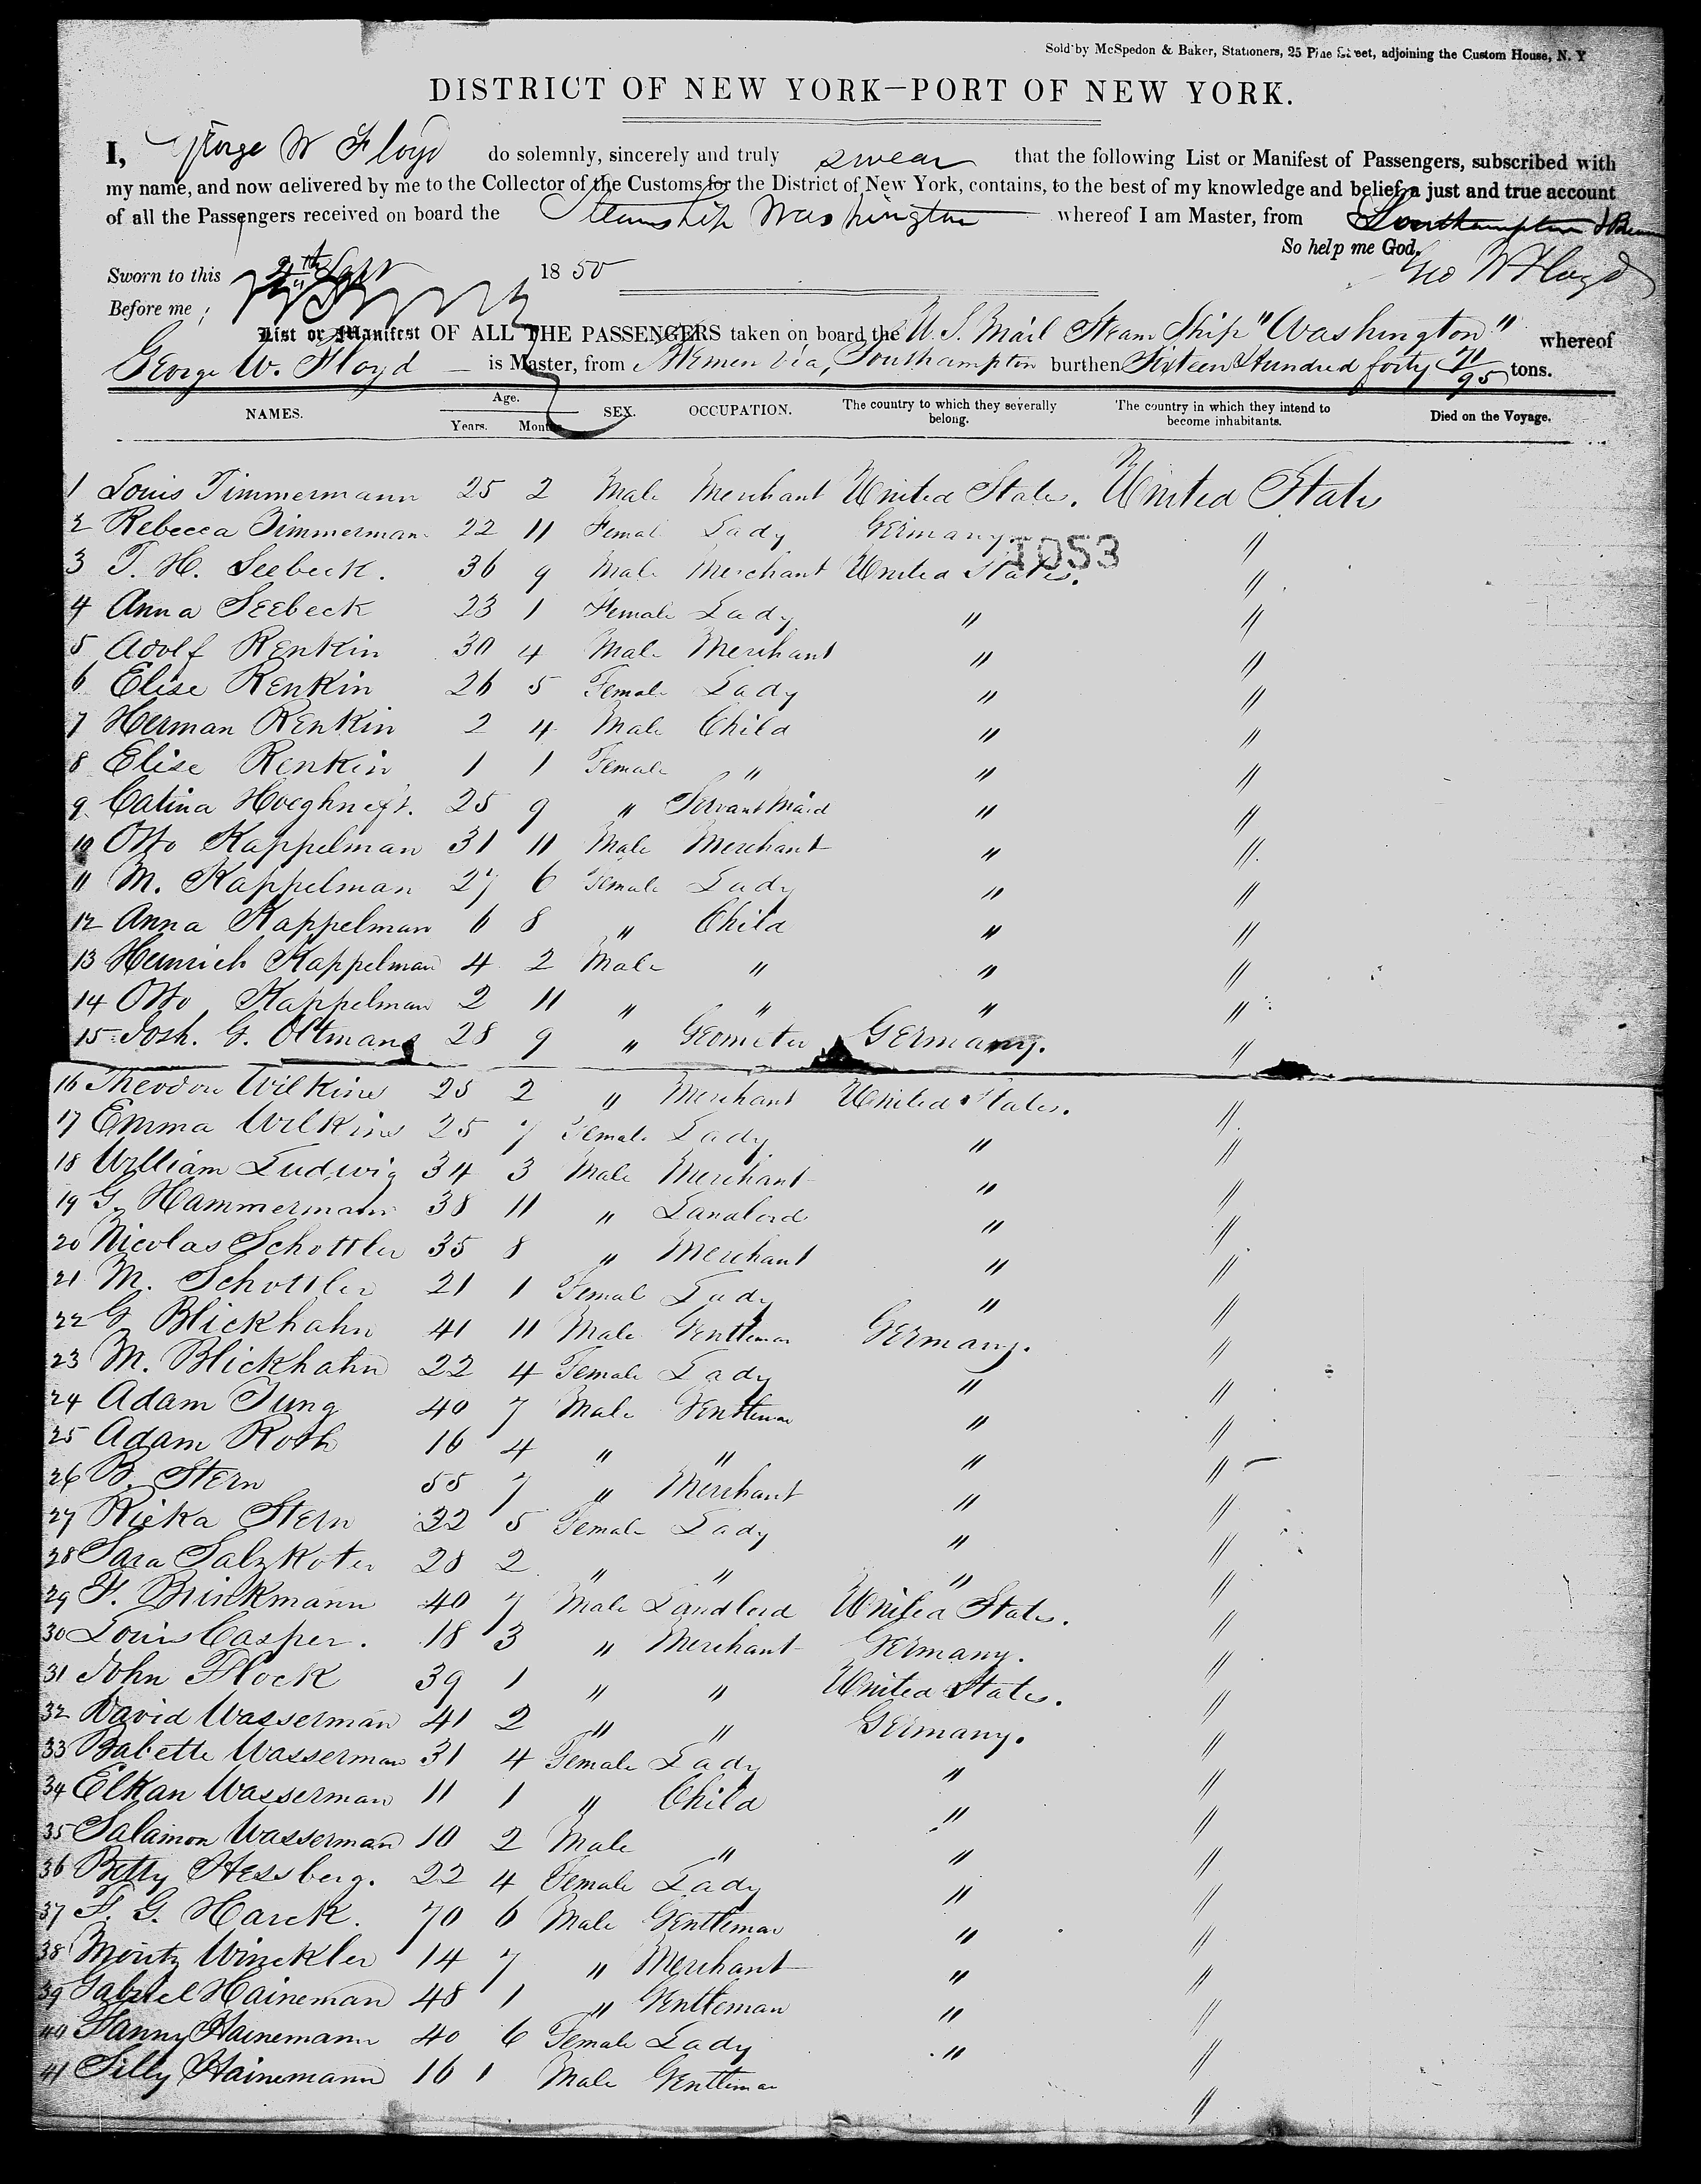 Sold by McSpedon & Baker, Stationers, 25 Pine Street, adjoining the Custom House, N. Y
DISTRICT OF NEW YORK—PORT OF NEW YORK.
I, George W Floyd do solemnly, sincerely and truly swear that the following List or Manifest of Passengers, subscribed with
my name, and now delivered by me to the Collector of the Customs for the District of New York, contains, to the best of my knowledge and belief, a just and true account
of all the Passengers received on board the Steamship Washington whereof I am Master, from Southampton &
So help me God.
Geo W Floyd
Sworn to this 1850
Before me ;
List or Manifest OF ALL THE PASSENGERS taken on board the U. S. Mail Steam Ship "Washington" whereof
George W. Floyd is Master, from Bremen via, Southampton burthen Sixteen Hundred forty 71/95 tons.
NAMES. Age. Years. Months. SEX. OCCUPATION. The country to which they severally belong. The country in which they intend to become inhabitants. Died on the Voyage.
1 Louis Timmermann 25 2 Male Merchant United States. United States
2 Rebecca Zimmerman 22 11 Femal Lady Germany "
1053
3 T. H. Seebeck. 36 9 Male Merchant United States. "
4 Anna Seebeck 23 1 Female Lady " "
5 Adolf Renkin 30 4 Male Merchant " "
6 Elise Renkin 26 5 Female Lady " "
7 Herman Renkin 2 4 Male Child " "
8 Elise Renkin 1 1 Female " " "
9 Catina 25 9 " Servant Maid " "
10 Otto Kappelman 31 11 Male Merchant " "
11 M. Kappelman 27 6 Female Lady " "
12 Anna Kappelman 6 8 " Child " "
13 Heinrich Kappelman 4 2 Male " " "
14 Otto Kappelman 2 11 " " " "
15 Josh. G. Oltmans 28 9 " Geometer Germany. "
16 Theodore Wilkins 25 2 " Merchant United States. "
17 Emma Wilkins 25 7 Female Lady " "
18 William Ludwig 34 3 Male Merchant " "
19 G. Hammermann 38 11 " Landlord " "
20 Nicolas Schottler 35 8 " Merchant " "
21 M. Schottler 21 1 Femal Lady " "
22 G Blickhahn 41 11 Male Gentleman Germany. "
23 M. Blickhahn 22 4 Female Lady " "
24 Adam Jung 40 7 Male Gentleman " "
25 Adam Roth 16 4 " " " "
26 B. Stern 55 7 " Merchant " "
27 Ricka Stern 22 5 Female Lady " "
28 Sara Salzkoter 28 2 " " " "
29 F. Brinkmann 40 7 Male Landlord United States. "
30 Louis Casper. 18 3 " Merchant Germany. "
31 John Flock 39 1 " " United States. "
32 David Wasserman 41 2 " " Germany. "
33 Babette Wasserman 31 4 Female Lady " "
34 Elkan Wasserman 11 1 " Child " "
35 Salamon Wasserman 10 2 Male " " "
36 Betty Hessberg. 22 4 Female Lady " "
37 F. G. Harck. 70 6 Male Gentleman " "
38 Moritz Winckler 14 7 " Merchant " "
39 Gabriel Haineman 48 1 " Gentleman " "
40 Fanny Hainemann 40 6 Female Lady " "
41 Silly Hainemann 16 1 Male Gentleman "